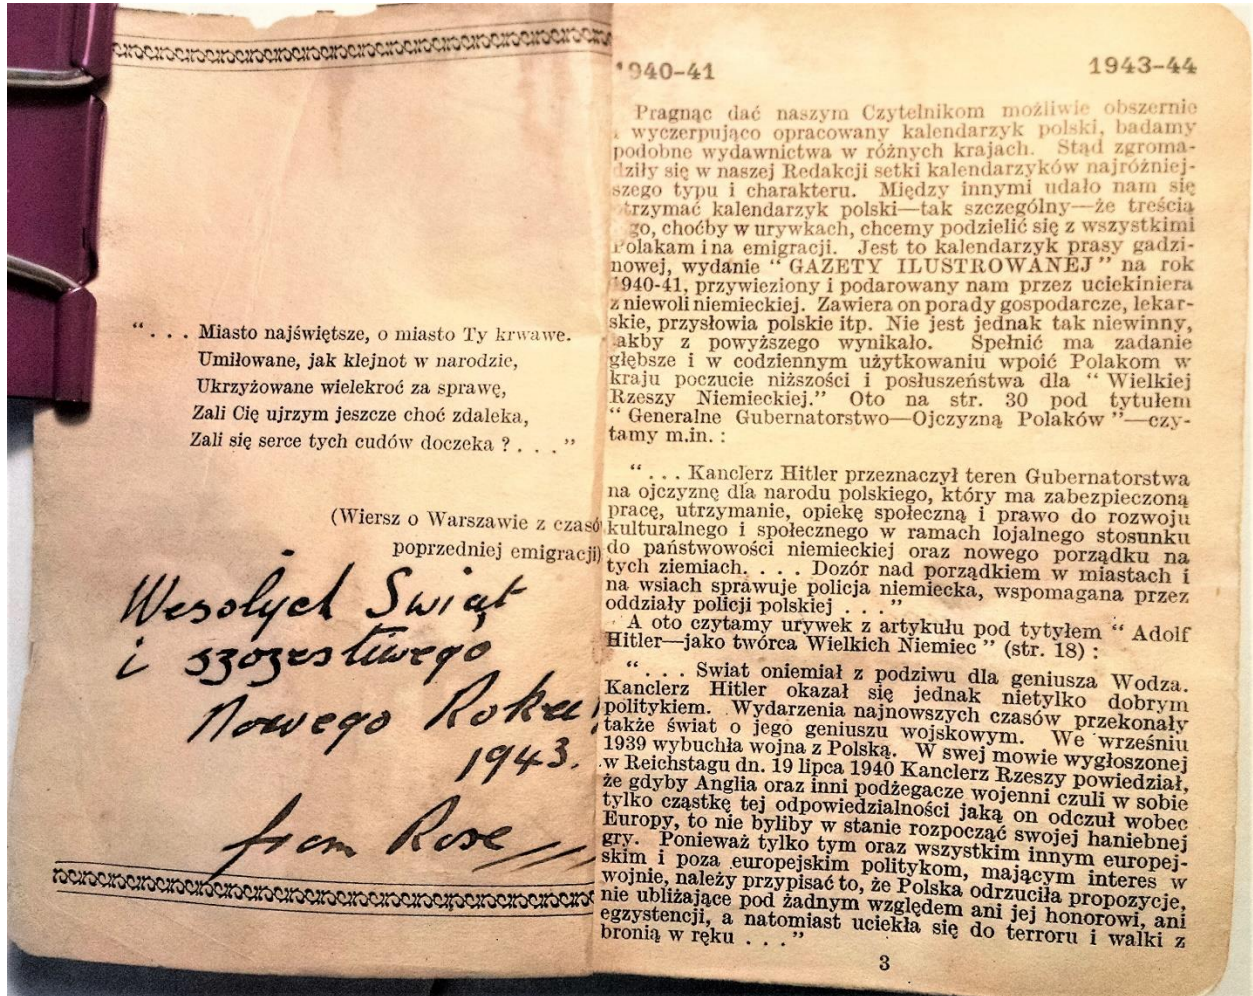 “ . . . Miasto najświętsze, o miasto Ty krwawe.
Umiłowane, jak klejnot w narodzie,
Ukrzyżowane wielekroć za sprawę,
Zali Cię ujrzym jeszcze choć zdaleka,
Zali się serce tych cudów doczeka ? . . . ”
(Wiersz o Warszawie z czasó
poprzedniej emigracji)
Wesołych Swiąt
i szczęsliwego
Nowego Roku
1943.
from Rose
1940-41 1943-44
Pragnąc dać naszym Czytelnikom możliwie obszernie
i wyczerpująco opracowany kalendarzyk polski, badamy
podobne wydawnictwa w różnych krajach. Stąd zgroma-
dziły się w naszej Redakcji setki kalendarzyków najróżniej-
szego typu i charakteru. Między innymi udało nam się
trzymać kalendarzyk polski—tak szczególny—że treścią
go, choćby w urywkach, chcemy podzielić się z wszystkimi
Polakami na emigracji. Jest to kalendarzyk prasy gadzi-
nowej, wydanie “ GAZETY ILUSTROWANEJ ” na rok
1940-41, przywieziony i podarowany nam przez uciekiniera
z niewoli niemieckiej. Zawiera on porady gospodarcze, lekar-
skie, przysłowia polskie itp. Nie jest jednak tak niewinny,
akby z powyższego wynikało. Spełnić ma zadanie
głębsze i w codziennym użytkowaniu wpoić Polakom w
kraju poczucie niższości i posłuszeństwa dla “ Wielkiej
Rzeszy Niemieckiej.” Oto na str. 30 pod tytułem
“ Generalne Gubernatorstwo—Ojczyzną Polaków ”—czy-
tamy m.in. :
“ . . . Kanclerz Hitler przeznaczył teren Gubernatorstwa
na ojczyznę dla narodu polskiego, który ma zabezpieczoną
pracę, utrzymanie, opiekę społeczną i prawo do rozwoju
kulturalnego i społecznego w ramach lojalnego stosunku
do państwowości niemieckiej oraz nowego porządku na
tych ziemiach. . . . Dozór nad porządkiem w miastach i
na wsiach sprawuje policja niemiecka, wspomagana przez
oddziały policji polskiej . . . ”
A oto czytamy urywek z artykułu pod tytyłem “ Adolf
Hitler—jako twórca Wielkich Niemiec ” (str. 18) :
“ . . . Swiat oniemiał z podziwu dla geniusza Wodza.
Kanclerz Hitler okazał się jednak nietylko dobrym
politykiem. Wydarzenia najnowszych czasów przekonały
także świat o jego geniuszu wojskowym. We wrześniu
1939 wybuchła wojna z Polską. W swej mowie wygłoszonej
w Reichstagu dn. 19 lipca 1940 Kanclerz Rzeszy powiedział,
że gdyby Anglia oraz inni podżegacze wojenni czuli w sobie
tylko cząstkę tej odpowiedzialności jaką on odczuł wobec
Europy, to nie byliby w stanie rozpocząć swojej haniebnej
gry. Ponieważ tylko tym oraz wszystkim innym europej-
skim i poza europejskim politykom, mającym interes w
wojnie, należy przypisać to, że Polska odrzuciła propozycje,
nie ubliżające pod żadnym względem ani jej honorowi, ani
egzystencji, a natomiast uciekła się do terroru i walki z
bronią w ręku . . . ”
3